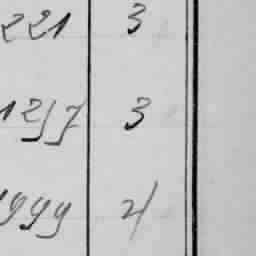 221 3
1277 3
1999 4